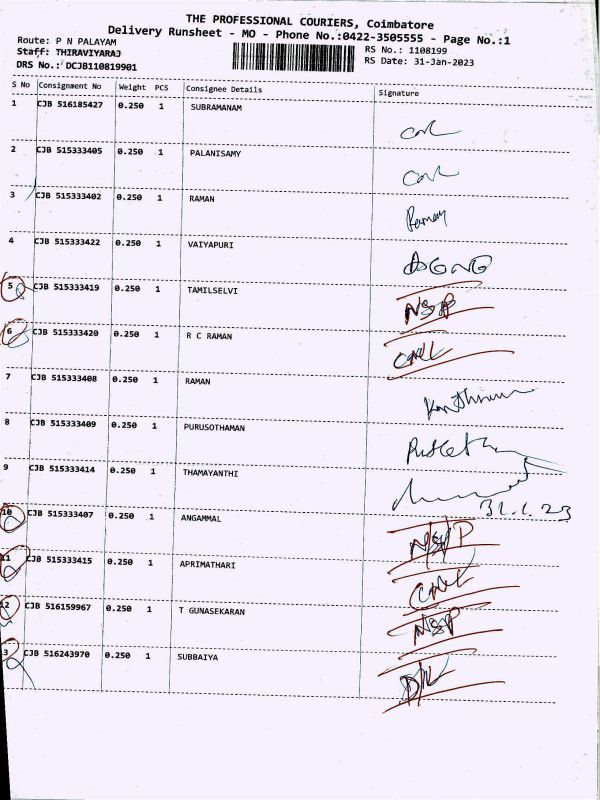 THE PROFESSIONAL COURIERS, Coimbatore
Delivery Runsheet - MO - Phone No.:0422-3505555 - Page No.:1
Route: P N PALAYAM
Staff: THIRAVIYARAJ
DRS No.: DCJB110819901
RS No.: 1108199
RS Date: 31-Jan-2023
S No Consignment No Weight PCS Consignee Details Signature
1 CJB 516185427 0.250 1 SUBRAMANAM
2 CJB 515333405 0.250 1 PALANISAMY
3 CJB 515333402 0.250 1 RAMAN Raman
4 CJB 515333422 0.250 1 VAIYAPURI
5 CJB 515333419 0.250 1 TAMILSELVI NSP
6 CJB 515333420 0.250 1 R C RAMAN
7 CJB 515333408 0.250 1 RAMAN
8 CJB 515333409 0.250 1 PURUSOTHAMAN
9 CJB 515333414 0.250 1 THAMAYANTHI
31.1.23
10 CJB 515333407 0.250 1 ANGAMMAL NSP
11 CJB 515333415 0.250 1 APRIMATHARI
12 CJB 516159967 0.250 1 T GUNASEKARAN NSP
13 CJB 516243970 0.250 1 SUBBAIYA D/L